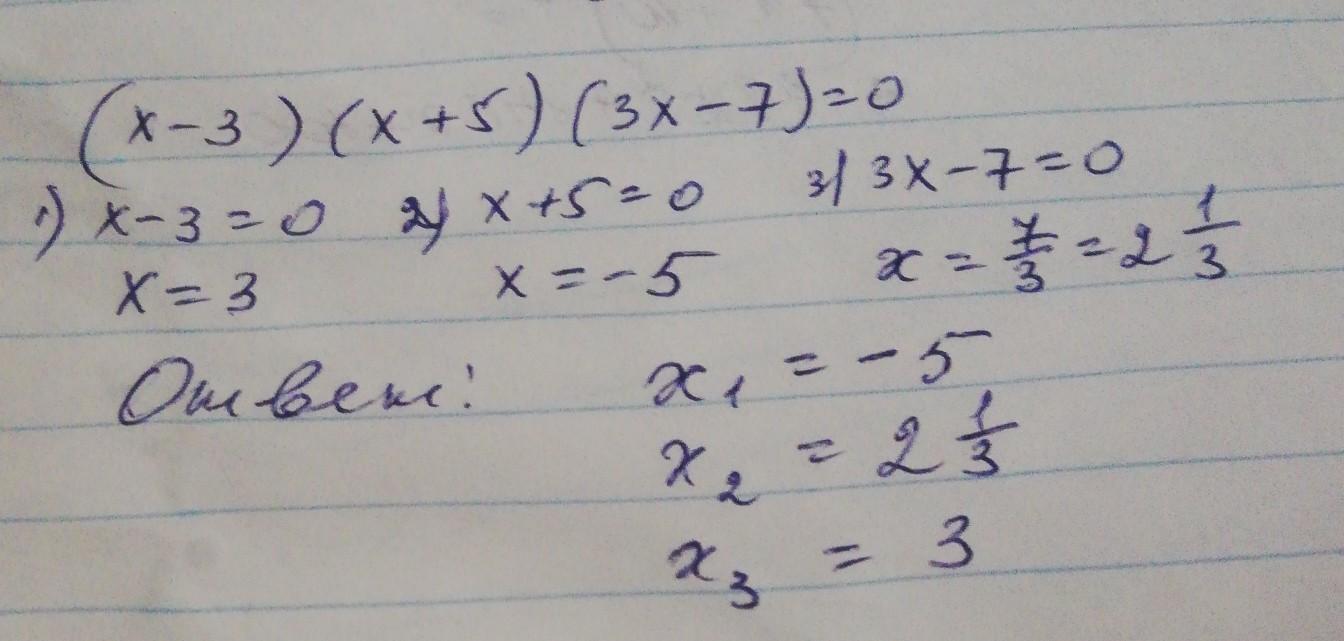 (x-3)(x+5)(3x-7)=0
1) x-3=0 2) x+5=0 3) 3x-7=0
x=3 x=-5 x=7/3=2 1/3
Ответ: x₁=-5
x₂=2 1/3
x₃=3